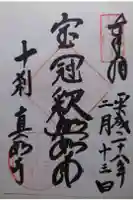 奉拝
平成二十八年
二月十三日
宝冠釈迦如来
十刹 真如寺